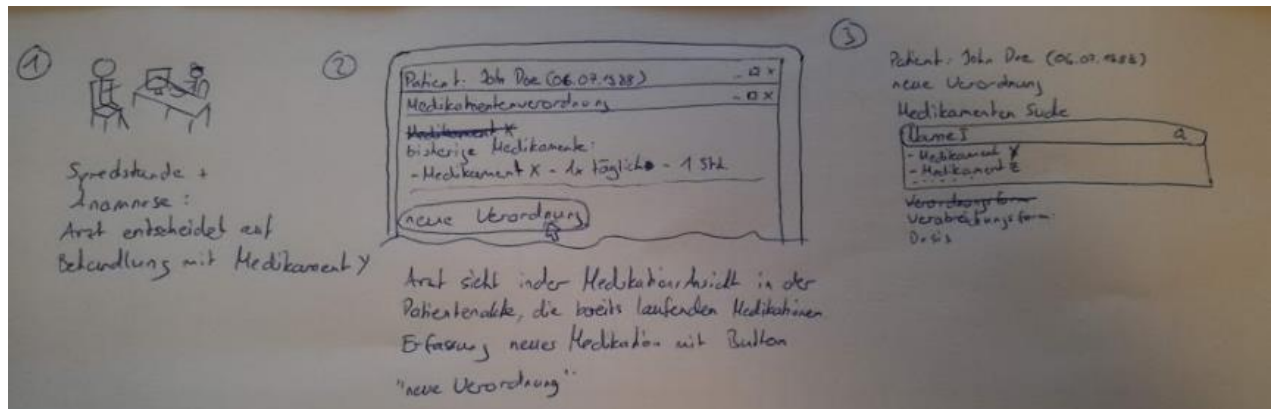 1
Sprechstunde +
Anamnese:
Arzt entscheidet auf
Behandlung mit Medikament Y
2
Patient: John Doe (06.07.1988)
Medikamentenverordnung
Medikament X
bisherige Medikamente:
- Medikament X - 1x täglich - 1 Stk
neue Verordnung
Arzt sieht in der Medikations Ansicht in der
Patientenakte, die bereits laufenden Medikationen
Erfassung neuer Medikation mit Button
"neue Verordnung"
3
Patient: John Doe (06.07.1988)
neue Verordnung
Medikamenten Suche
Name
- Medikament Y
- Medikament Z
Verordnungsform
Verabreichungsform:
Dosis